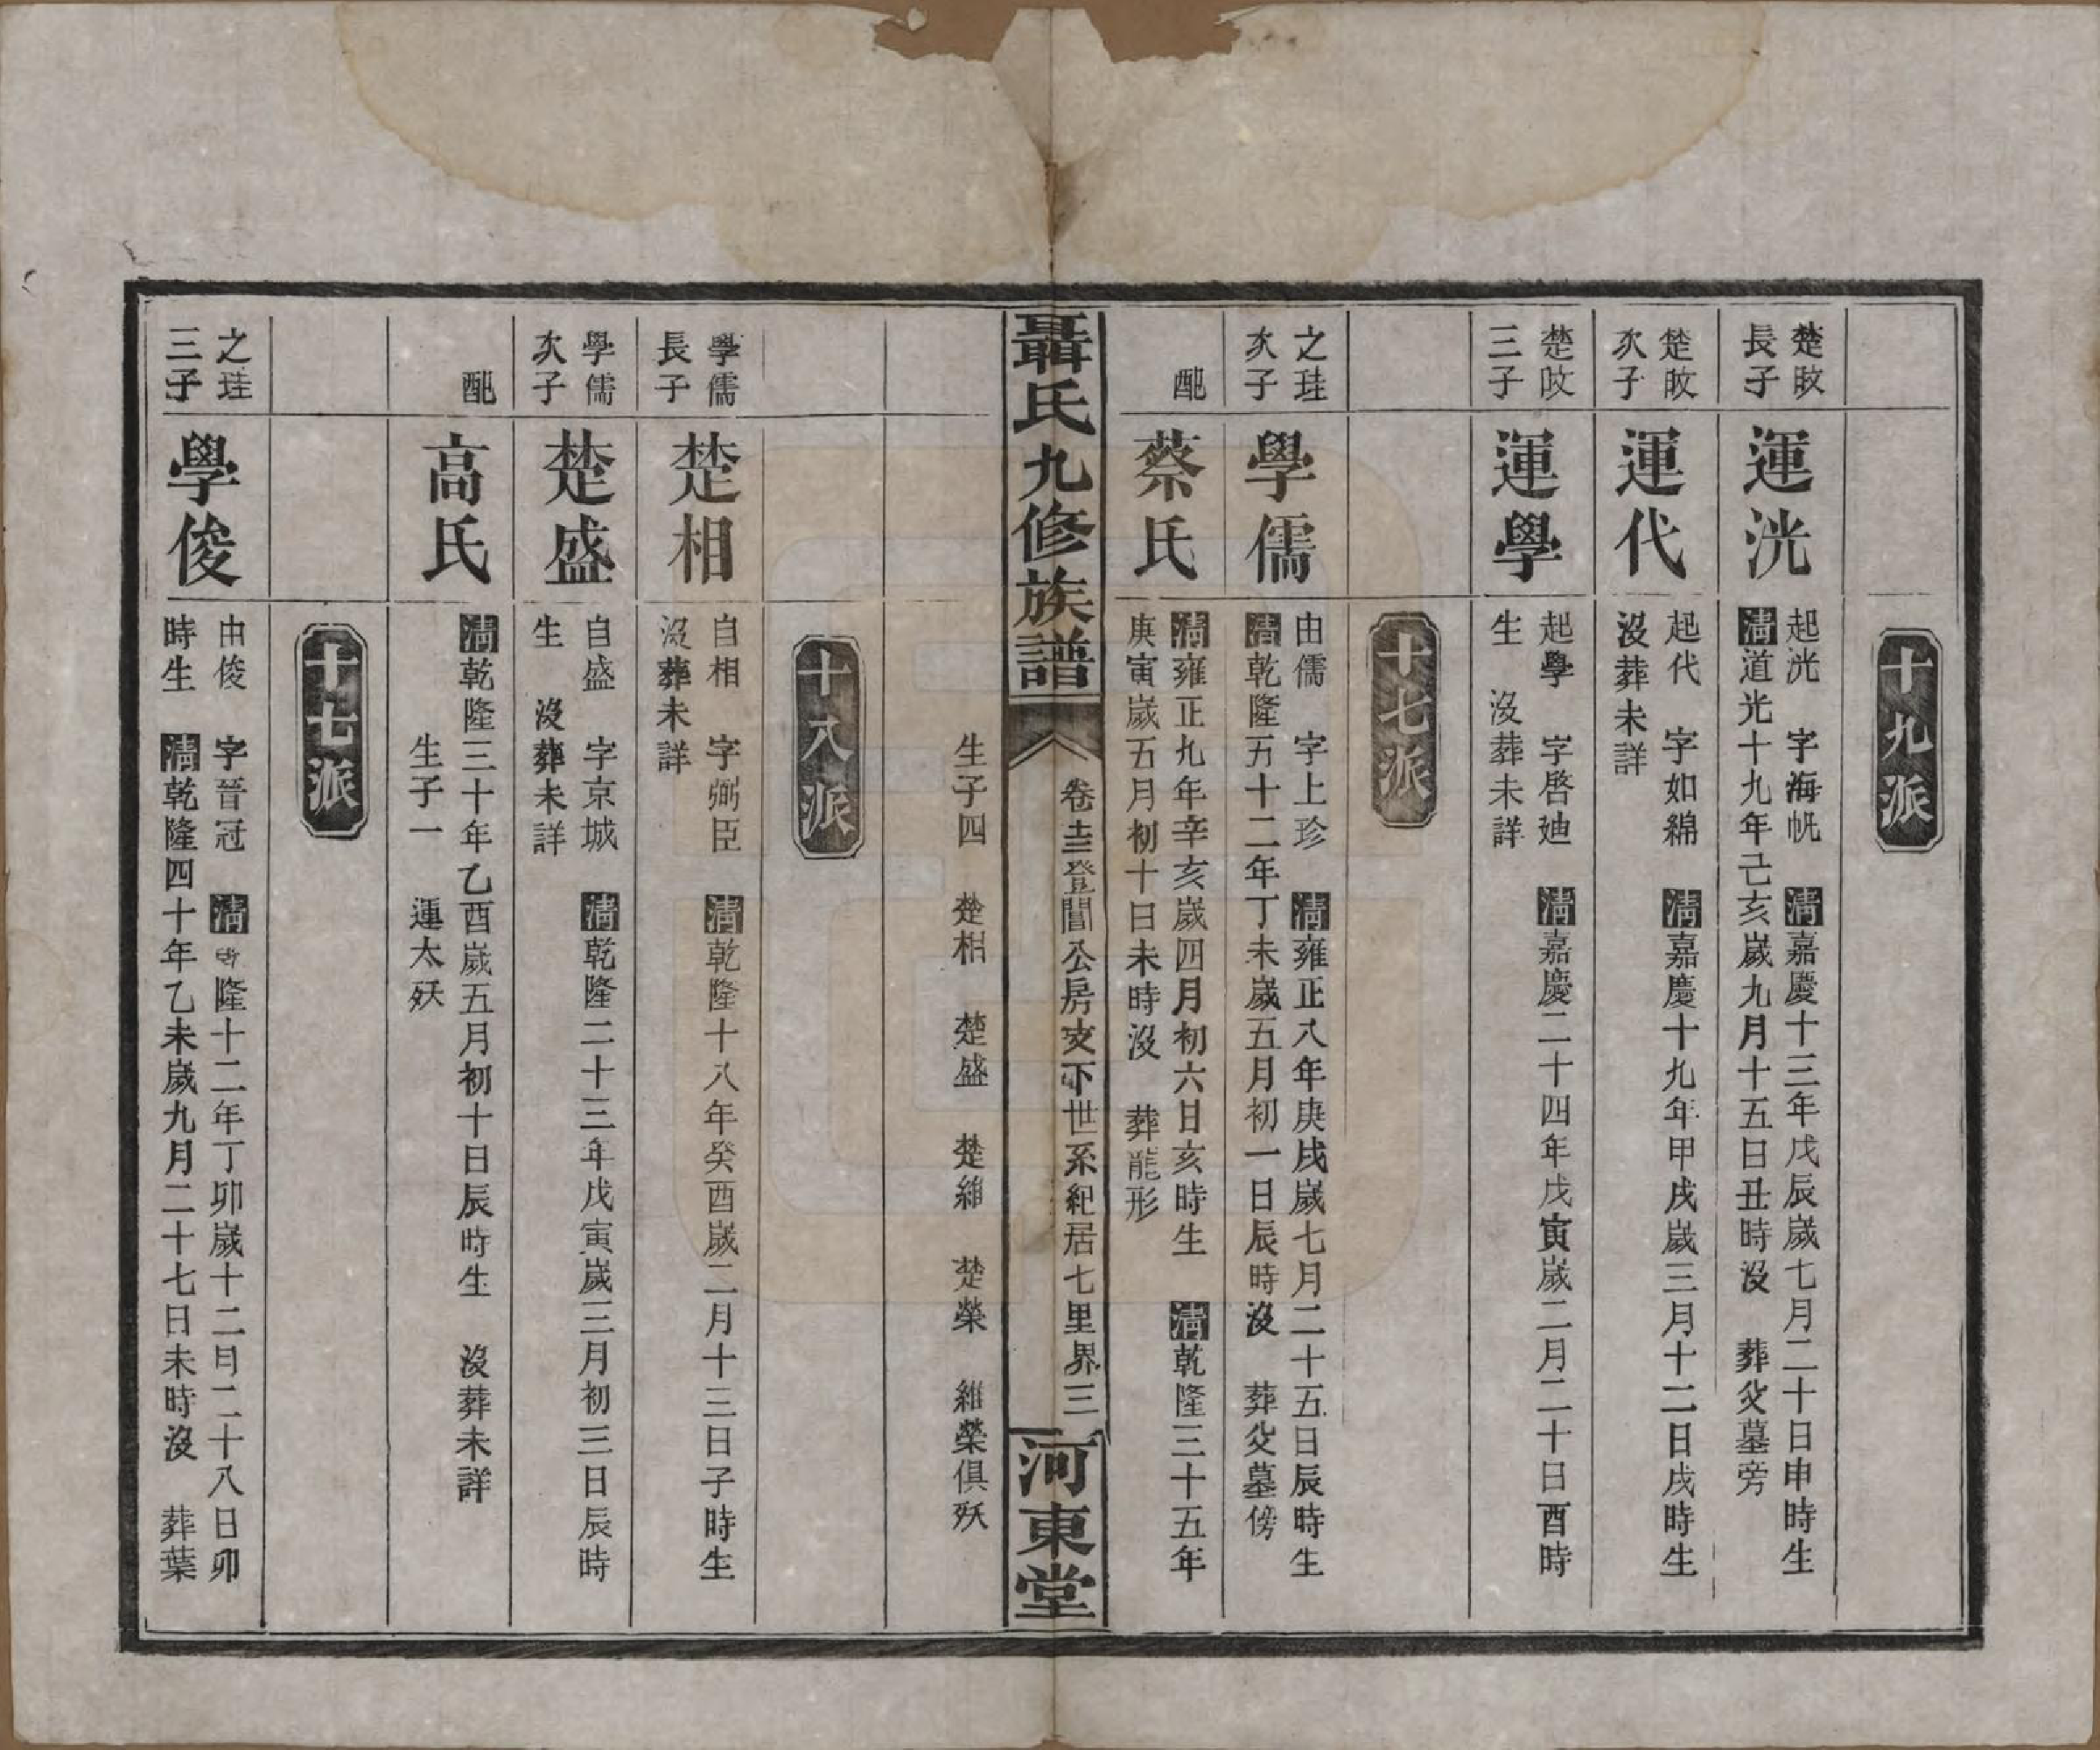 十九派
楚旼
長子
運洸
起洸　字海帆　清嘉慶十三年戊辰歲七月二十日申時生
清道光十九年己亥歲九月十五日丑時沒　葬父墓旁
楚旼
次子
運代
起代　字如綿　清嘉慶十九年甲戌歲三月十二日戌時生
沒葬未詳
楚旼
三子
運學
起學　字啓迪　清嘉慶二十四年戊寅歲二月二十日酉時
生　沒葬未詳
十七派
之珪
次子
學儒
由儒　字上珍　清雍正八年庚戌歲七月二十五日辰時生
清乾隆五十二年丁未歲五月初一日辰時沒　葬父墓傍
配
蔡氏
清雍正九年辛亥歲四月初六日亥時生　清乾隆三十五年
庚寅歲五月初十日未時沒　葬龍形
聶氏九修族譜
卷十三登閶公房支下世系紀居七里界三
河東堂
生子四　楚相　楚盛　楚維　楚榮　維榮俱殀
十八派
學儒
長子
楚相
自相　字弼臣　清乾隆十八年癸酉歲二月十三日子時生
沒葬未詳
學儒
次子
楚盛
自盛　字京城　清乾隆二十三年戊寅歲三月初三日辰時
生　沒葬未詳
配
高氏
清乾隆三十年乙酉歲五月初十日辰時生　沒葬未詳
生子一　運太殀
十七派
之珪
三子
學俊
由俊　字晉冠　清隆十二年丁卯歲十二月二十八日卯
時生　清乾隆四十年乙未歲九月二十七日未時沒　葬葉